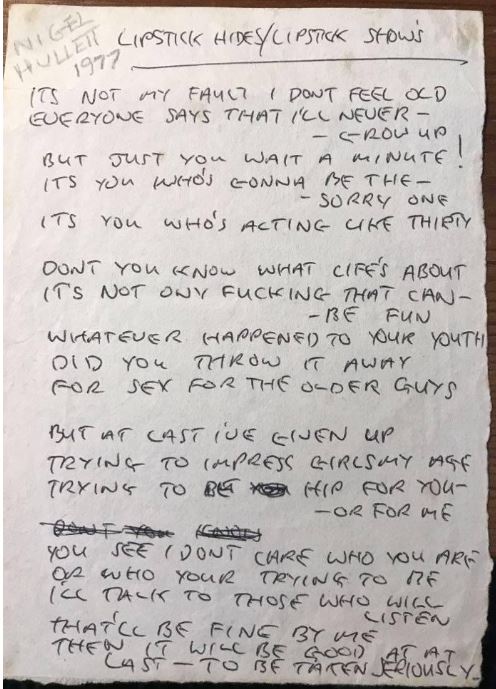 NIGEL
HULLETT
1977
LIPSTICK HIDES/LIPSTICK SHOWS
ITS NOT MY FAULT I DONT FEEL OLD
EVERYONE SAYS THAT I'LL NEVER –
– GROW UP
BUT JUST YOU WAIT A MINUTE!
ITS YOU WHO'S GONNA BE THE –
– SORRY ONE
ITS YOU WHO'S ACTING LIKE THIRTY
DONT YOU KNOW WHAT LIFE'S ABOUT
IT'S NOT ONY FUCKING THAT CAN –
– BE FUN
WHATEVER HAPPENED TO YOUR YOUTH
DID YOU THROW IT AWAY
FOR SEX FOR THE OLDER GUYS
BUT AT LAST I'VE GIVEN UP
TRYING TO IMPRESS GIRLS MY AGE
TRYING TO BE HIP FOR YOU –
– OR FOR ME
DONT YOU
YOU SEE I DONT CARE WHO YOU ARE
OR WHO YOUR TRYING TO BE
I'LL TALK TO THOSE WHO WILL
LISTEN
THAT'LL BE FINE BY ME
THEN IT WILL BE GOOD AT AT
LAST – TO BE TAKEN SERIOUSLY